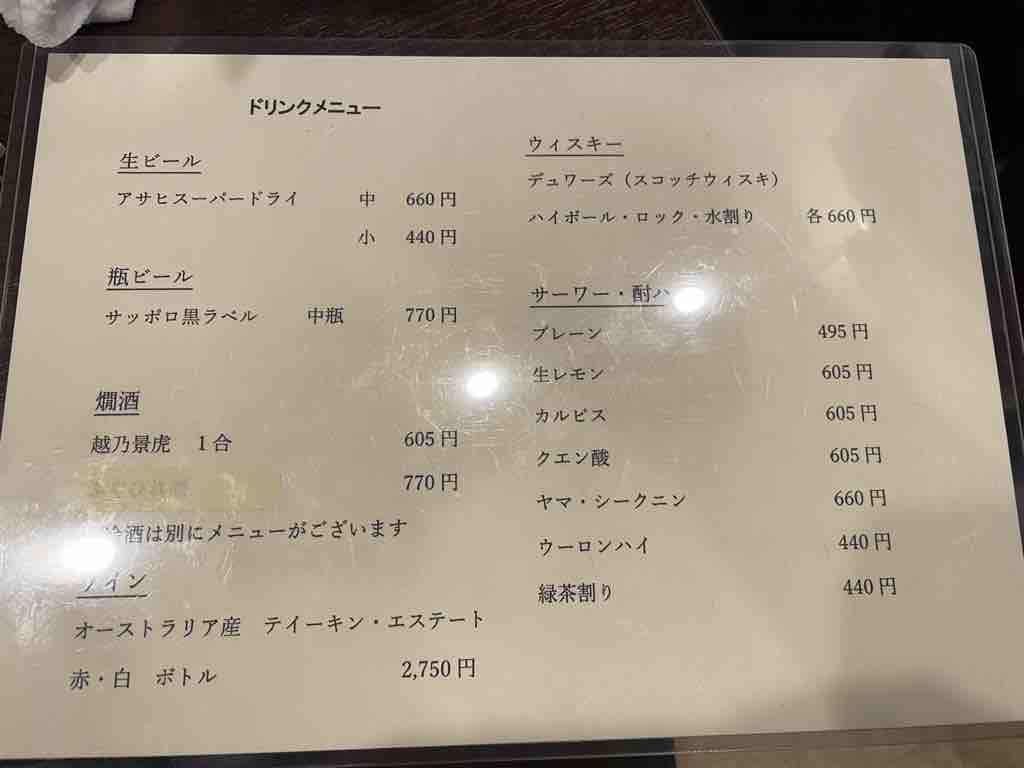 ドリンクメニュー
生ビール
アサヒスーパードライ 中 660円
小 440円
瓶ビール
サッポロ黒ラベル 中瓶 770円
燗酒
越乃景虎 1合 605円
770円
酒は別にメニューがございます
イン
オーストラリア産 テイーキン・エステート
赤・白 ボトル 2,750円
ウィスキー
デュワーズ（スコッチウィスキ）
ハイボール・ロック・水割り 各660円
サーワー・酎ハ
プレーン 495円
生レモン 605円
カルピス 605円
クエン酸 605円
ヤマ・シークニン 660円
ウーロンハイ 440円
緑茶割り 440円